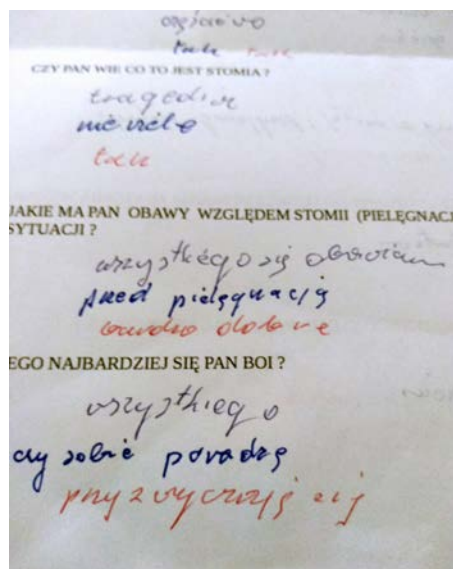 częściowo
tak tak
CZY PAN WIE CO TO JEST STOMIA ?
tragedia
nie wiele
tak
JAKIE MA PAN OBAWY WZGLĘDEM STOMII (PIELĘGNACJ
SYTUACJI ?
wszystkiego się obawiam
przed pielęgnacją
bardzo dobre
EGO NAJBARDZIEJ SIĘ PAN BOI ?
wszystkiego
czy sobie poradzę
przyzwyczaję się